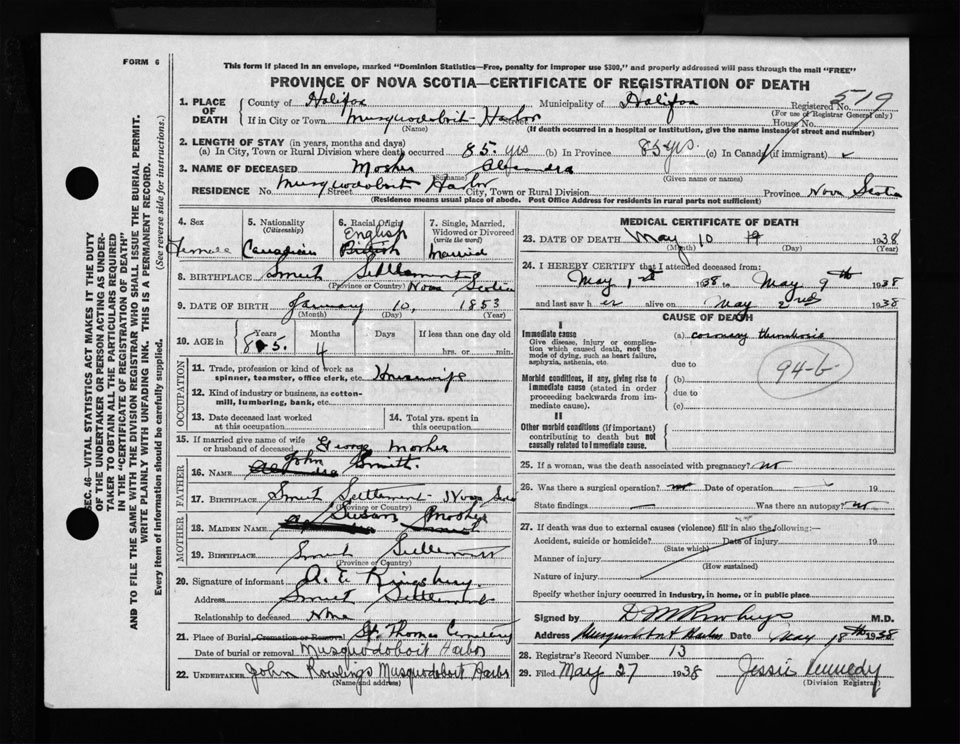 FORM 6
This form if placed in an envelope, marked "Dominion Statistics—Free, penalty for improper use $300," and properly addressed will pass through the mail "FREE"
PROVINCE OF NOVA SCOTIA—CERTIFICATE OF REGISTRATION OF DEATH
1. PLACE OF DEATH
County of Halifax Municipality of Halifax Registered No. 519
(For use of Registrar General only)
If in City or Town Musquodoboit Harbor Street House No.
(Name) (If death occurred in a hospital or institution, give the name instead of street and number)
2. LENGTH OF STAY (in years, months and days)
(a) In City, Town or Rural Division where death occurred 85 yrs (b) In Province 85 yrs. (c) In Canada (if immigrant)
3. NAME OF DECEASED Mosher
(Surname) (Given name or names)
RESIDENCE No. Musquodoboit Street Harbor City, Town or Rural Division Province Nova Scotia
(Residence means usual place of abode. Post Office Address for residents in rural parts not sufficient)
4. Sex
Female
5. Nationality
(Citizenship)
Canadian
6. Racial Origin
English
British
7. Single, Married, Widowed or Divorced
(write the word)
Married
8. BIRTHPLACE Smith Settlement Nova Scotia
(Province or Country)
9. DATE OF BIRTH January 10, 1853
(Month) (Day) (Year)
10. AGE in
Years Months Days If less than one day old
85. 4 hrs. or min.
OCCUPATION
11. Trade, profession or kind of work as spinner, teamster, office clerk, etc. Housewife
12. Kind of industry or business, as cotton-mill, lumbering, bank, etc.
13. Date deceased last worked at this occupation
14. Total yrs. spent in this occupation
15. If married give name of wife or husband of deceased George Mosher
FATHER
16. NAME John Smith
17. BIRTHPLACE Smith Settlement - Nova
(Province or Country)
MOTHER
18. MAIDEN NAME Susan Mosher
19. BIRTHPLACE Smith Settlement
(Province or Country)
20. Signature of informant A. E. Kingsbury
Address Smith Settlement
Relationship to deceased None
21. Place of Burial, Cremation or Removal St. Thomas Cemetery
Date of burial or removal Musquodoboit Harbor
22. UNDERTAKER John Rowlings Musquodoboit Harbor
(Name and address)
MEDICAL CERTIFICATE OF DEATH
23. DATE OF DEATH May 10 1938
(Month) (Day) (Year)
24. I HEREBY CERTIFY that I attended deceased from:
May 1st 1938 to May 9th 1938
and last saw her alive on May 2nd 1938
CAUSE OF DEATH
I
Immediate cause
Give disease, injury or complication which caused death, not the mode of dying, such as heart failure, asphyxia, asthenia, etc.
(a) coronary thrombosis
due to
94-b
Morbid conditions, if any, giving rise to immediate cause (stated in order proceeding backwards from immediate cause).
(b)
due to
(c)
II
Other morbid conditions (if important) contributing to death but not causally related to immediate cause.
25. If a woman, was the death associated with pregnancy? no
26. Was there a surgical operation? no Date of operation 19
State findings Was there an autopsy? no
27. If death was due to external causes (violence) fill in also the following:—
Accident, suicide or homicide? Date of injury 19
(State which)
Manner of injury
(How sustained)
Nature of injury
Specify whether injury occurred in industry, in home, or in public place
Signed by M.D.
Address Musquodoboit Harbor Date May 18th 1938
28. Registrar's Record Number 13
29. Filed May 27 1938 Jessie Kennedy
(Division Registrar)
SEC. 46—VITAL STATISTICS ACT MAKES IT THE DUTY
OF THE UNDERTAKER OR PERSON ACTING AS UNDER-
TAKER TO OBTAIN ALL THE PARTICULARS REQUIRED
IN THE "CERTIFICATE OF REGISTRATION OF DEATH"
AND TO FILE THE SAME WITH THE DIVISION REGISTRAR WHO SHALL ISSUE THE BURIAL PERMIT.
WRITE PLAINLY WITH UNFADING INK. THIS IS A PERMANENT RECORD.
Every item of Information should be carefully supplied. (See reverse side for instructions.)